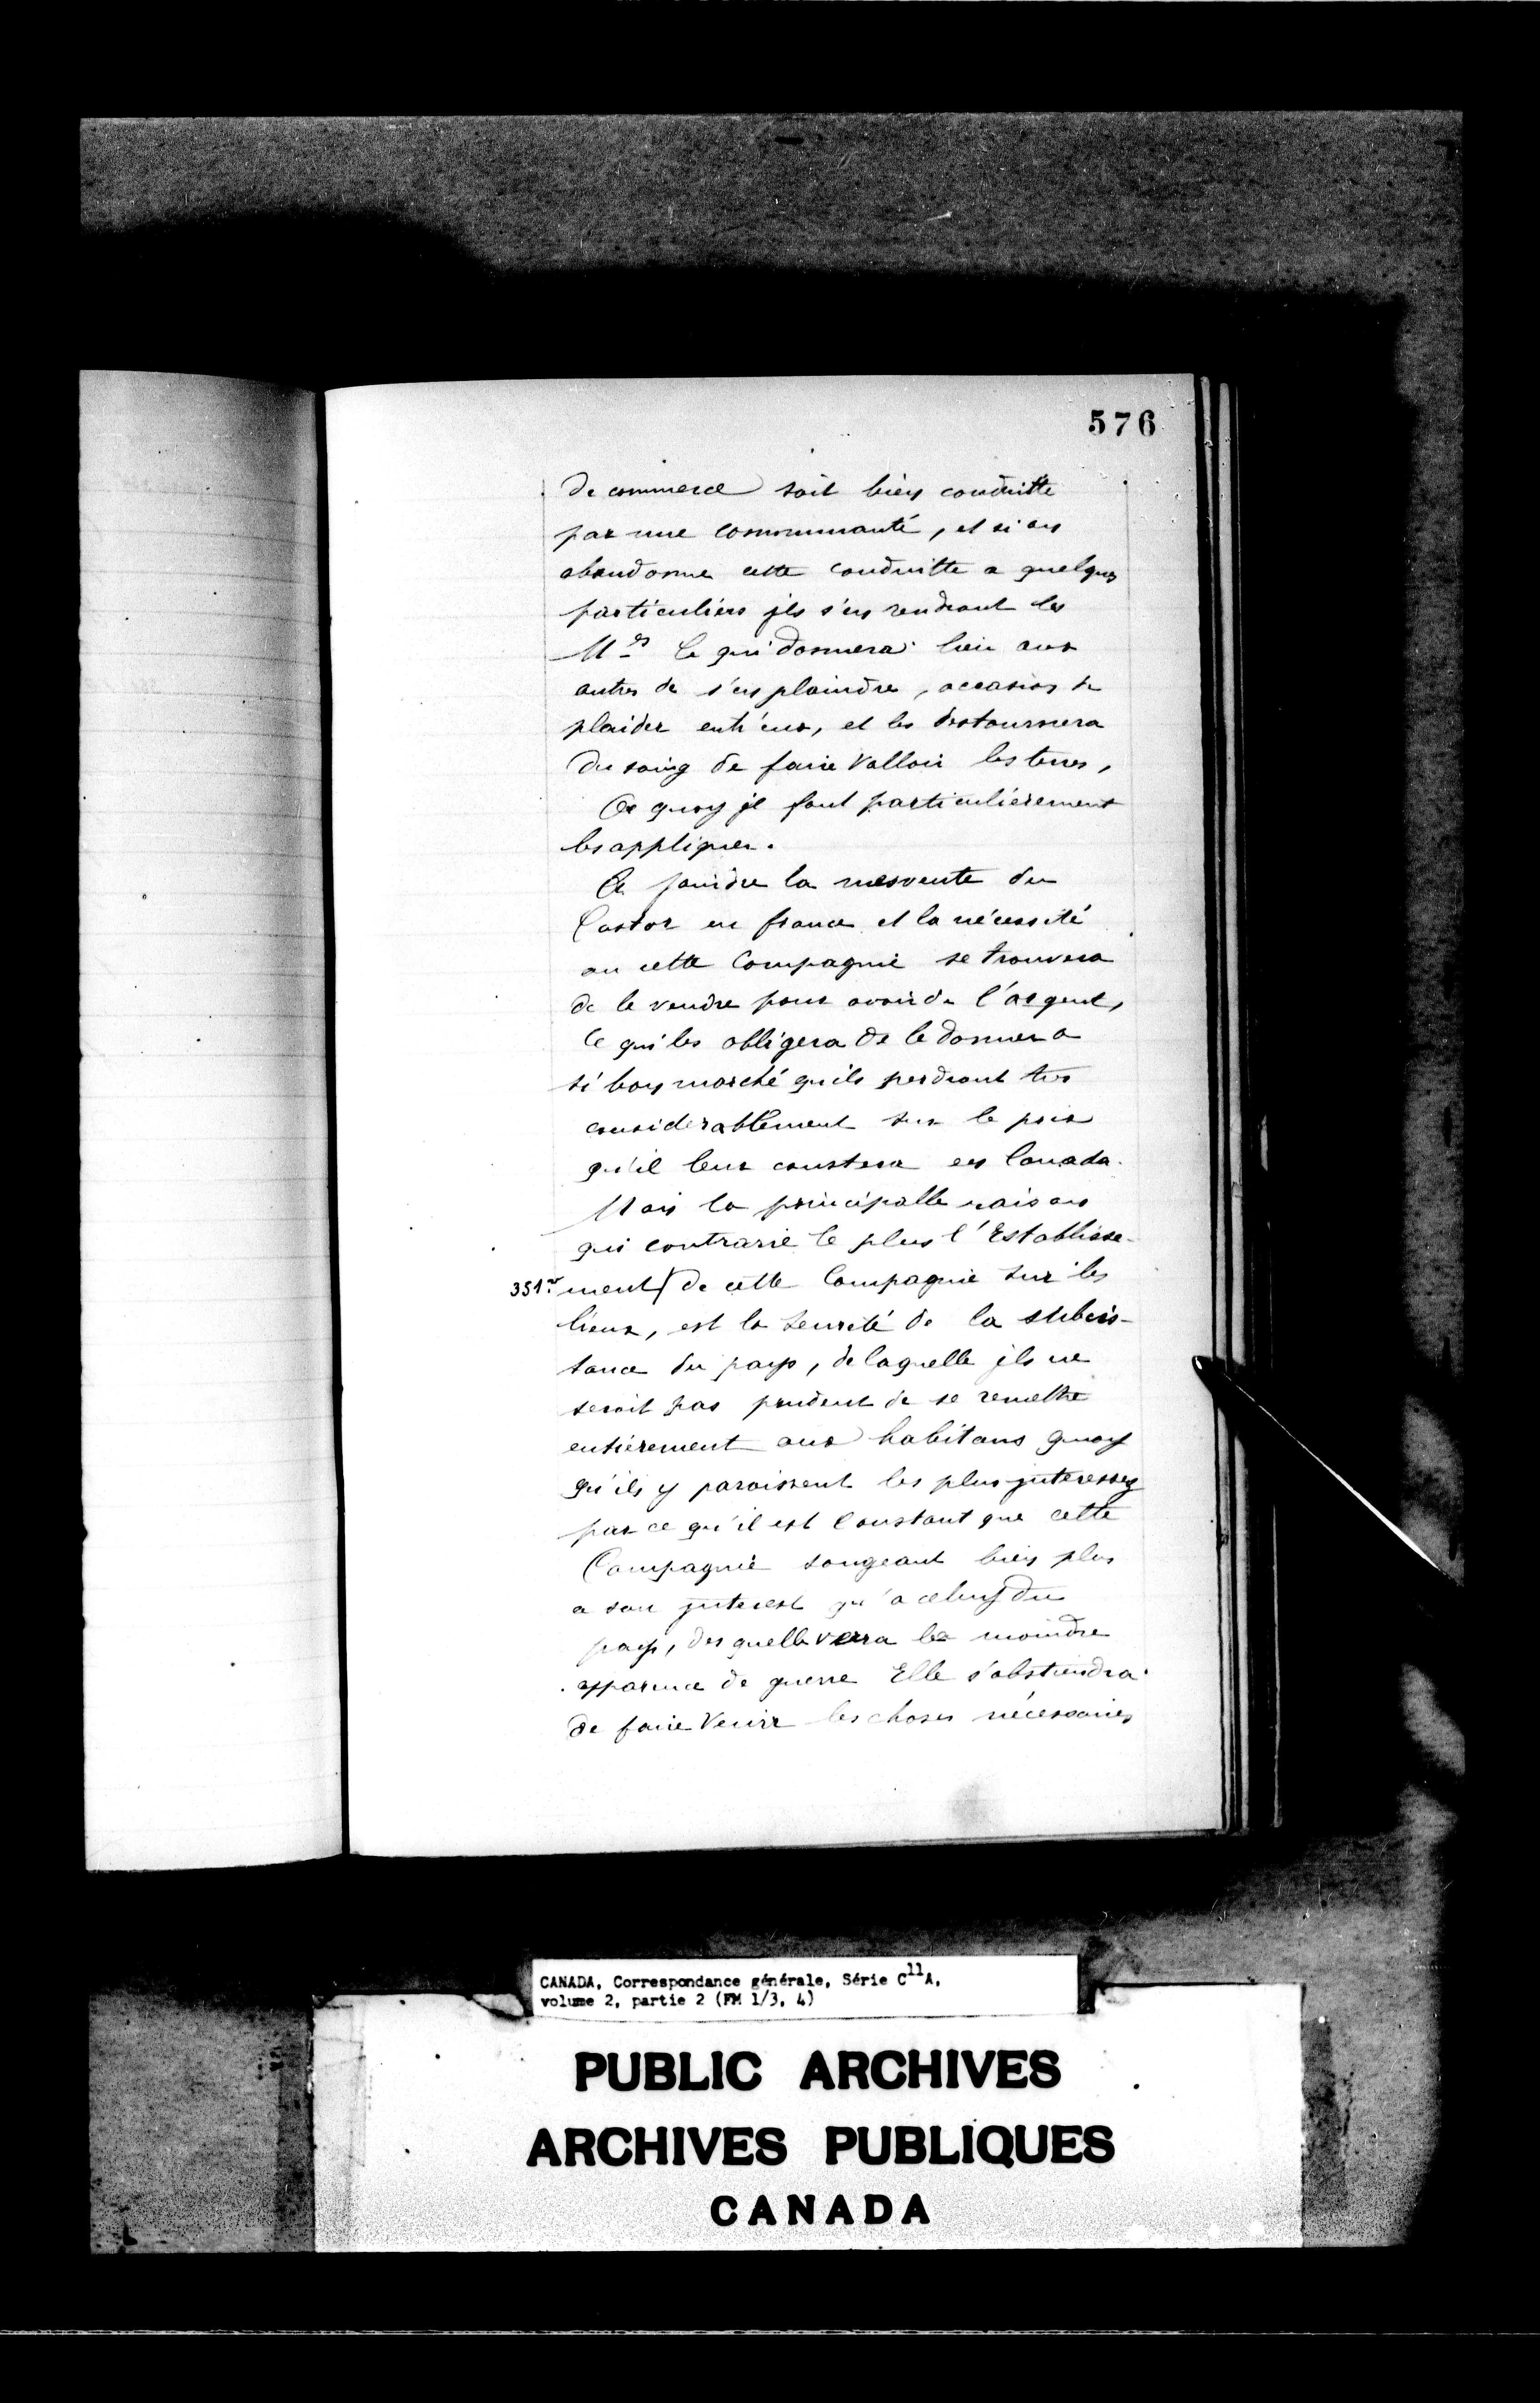 576
de commerce soit bien conduitte
par une communauté, et si on
abandonne cette conduitte a quelques
particuliers jls s'en rendront les
Mes Ce qui donnera lieu aux
autres de s'en plaindre, occasion de
plaider entr'eux, et les destournera
du soing de faire valloir les terres,
A quoy jl faut particulièrement
les appliquer.
A joindre la mesvente du
Castor en france et la nécessité
ou cette Compagnie se trouvera
de le vendre pour avoir de l'argent,
Ce qui les obligera de le donner a
si bon marché qu'ils perdront tres
considerablement sur le prix
qu'il leur coustera en Canada.
Mais la principalle raison
qui contrarie le plus l'Establisse-
351ro ment/ de cette Compagnie sur les
lieux, est la seureté de la subsis-
tance du pays, de laquelle jls ne
seroit pas prudent de se remettre
entièrement aux habitans quoy
qu'ils y paroissent les plus jnteressez
par ce qu'il est Constant que cette
Compagnie songeant bien plus
a son jnterest qu'a celuy du
pays, des quelle verra la moindre
apparence de guerre Elle s'abstiendra
de faire Venir les choses nécessaires
CANADA, Correspondance générale, Série C11A,
volume 2, partie 2 (FM 1/3, 4)
PUBLIC ARCHIVES
ARCHIVES PUBLIQUES
CANADA